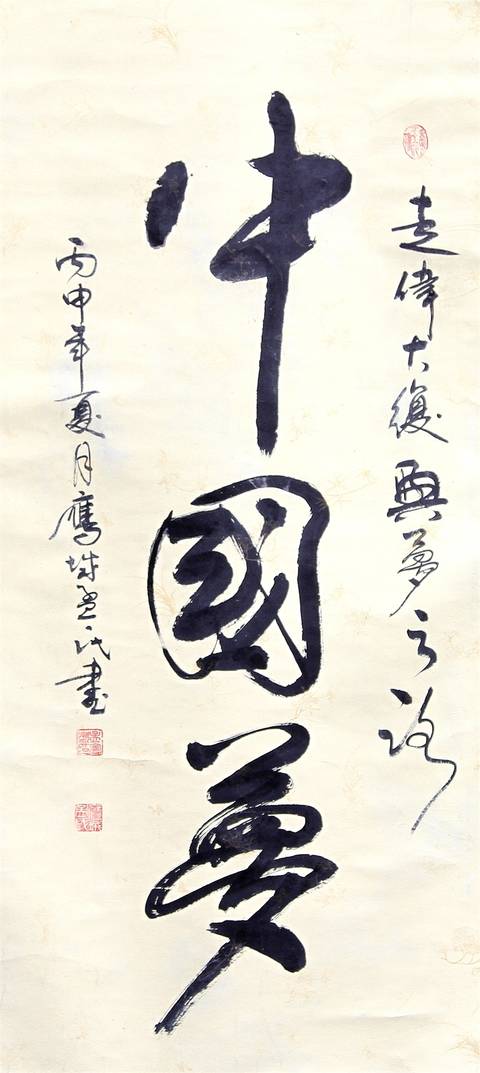 走偉大復興夢之路
中國夢
丙申年夏月鷹城孟氏書